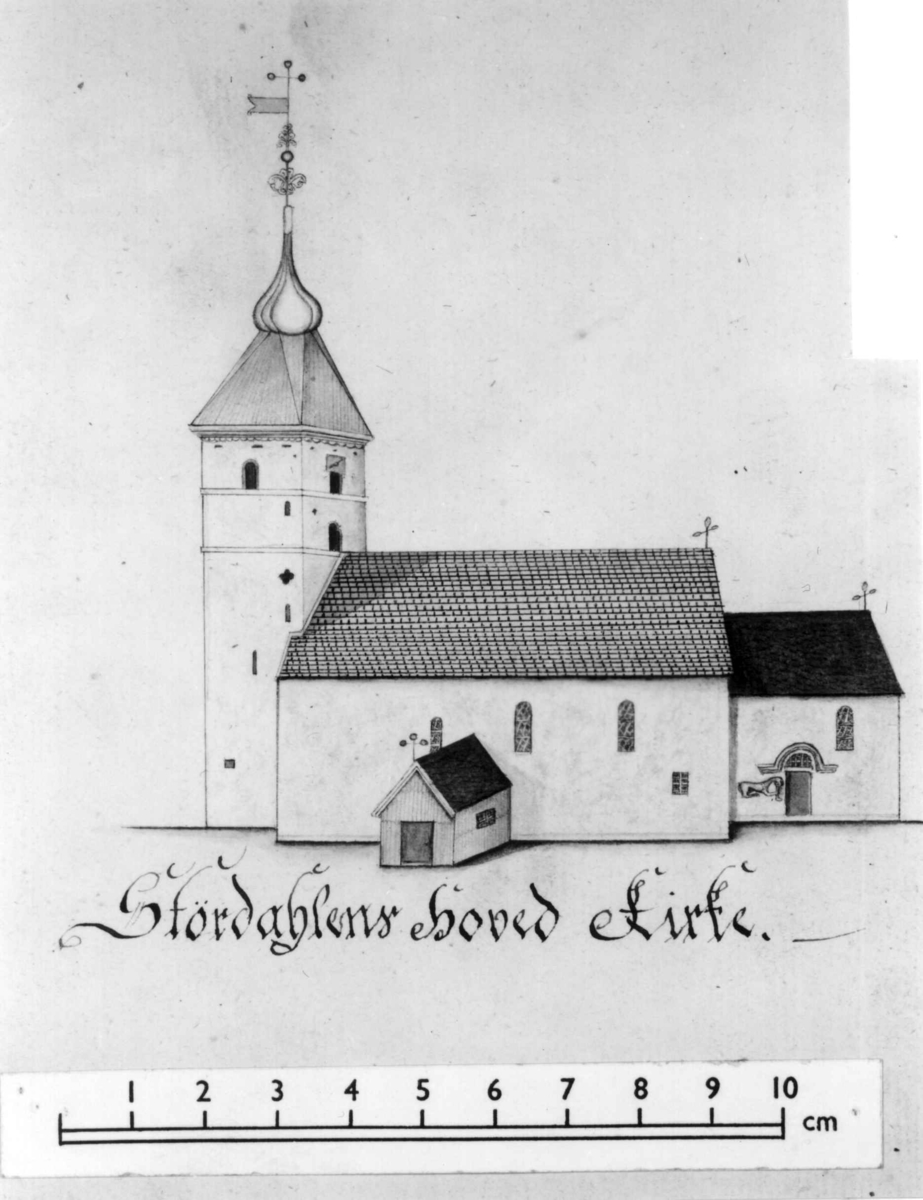 Stördahlens Hoved Kirke.
1 2 3 4 5 6 7 8 9 10
cm